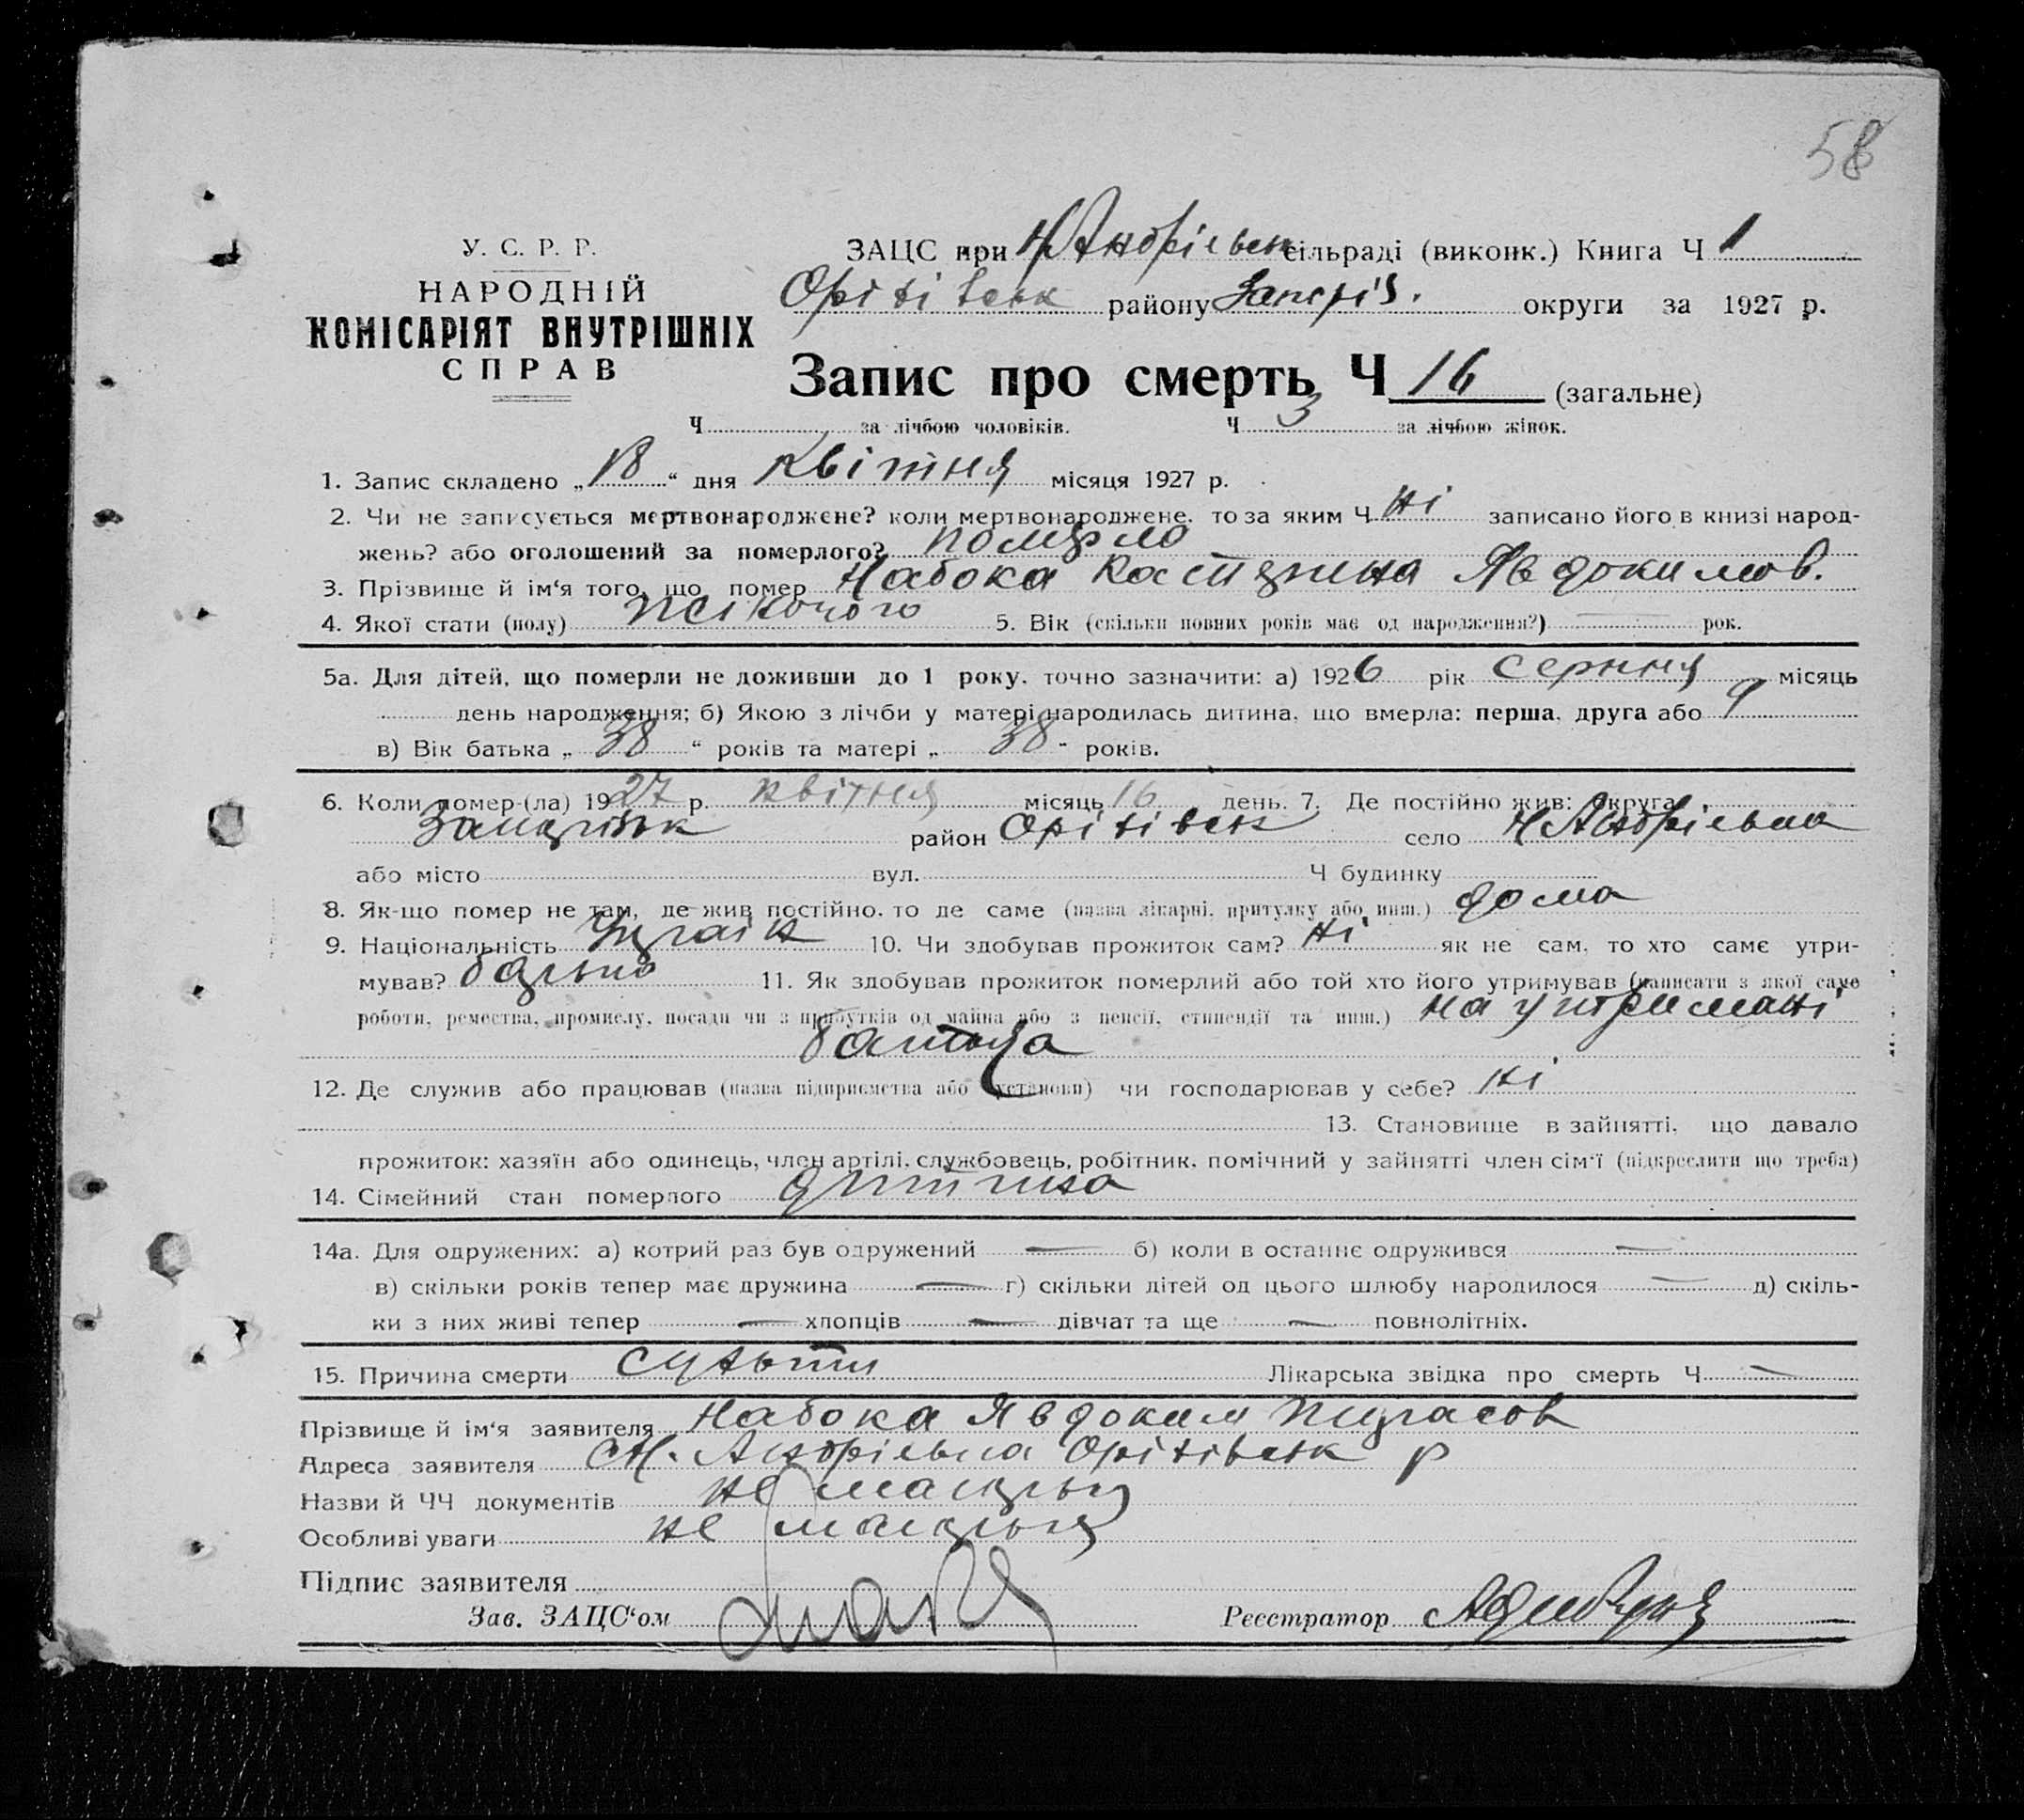 58
У. С. Р. Р.
НАРОДНІЙ
КОМІСАРІЯТ ВНУТРІШНІХ
СПРАВ
ЗАЦС при Н Андріевск сільраді (виконк.) Книга Ч 1
Оріхівськ району Запоріз. округи за 1927 р.
Запис про смерть Ч 16 (загальне)
Ч за лічбою чоловіків. Ч 3 за лічбою жінок.
1. Запис складено „18“ дня Квітня місяця 1927 р.
2. Чи не записується мертвонароджене? коли мертвонароджене, то за яким Ч ні записано його в книзі народ-
жень? або оголошений за померлого? померло
3. Прізвище й ім'я того, що помер Набока Явдокимов.
4. Якої стати (полу) жіночого 5. Вік (скільки повних років має од народження?) — рок.
5а. Для дітей, що померли не доживши до 1 року, точно зазначити: а) 1926 рік серпня місяць
день народження; б) Якою з лічби у матері народилась дитина, що вмерла: перша, друга або 9
в) Вік батька „38“ років та матері „38“ років.
6. Коли помер-(ла) 1927 р. квітня місяць 16 день. 7. Де постійно жив: округа
район Оріхівськ село Н Андріевка
або місто вул. Ч будинку
8. Як-що помер не там, де жив постійно, то де саме (назва лікарні, притулку або инш.) дома
9. Національність 10. Чи здобував прожиток сам? ні як не сам, то хто саме утри-
мував? батько 11. Як здобував прожиток померлий або той хто його утримував (написати з якої саме
роботи, ремества, промислу, посади чи з прибутків од майна або з пенсії, стипендії та инш.) на утримані
батька
12. Де служив або працював (назва підприємства або установи) чи господарював у себе? ні
13. Становище в зайнятті, що давало
прожиток: хазяїн або одинець, член артілі, службовець, робітник, помічний у зайнятті член сім'ї (підкреслити що треба)
14. Сімейний стан померлого дитина
14а. Для одружених: а) котрий раз був одружений — б) коли в останнє одружився —
в) скільки років тепер має дружина — г) скільки дітей од цього шлюбу народилося — д) скіль-
ки з них живі тепер — хлопців — дівчат та ще — повнолітніх.
15. Причина смерти Лікарська звідка про смерть Ч —
Прізвище й ім'я заявителя Набока Явдоким
Адреса заявителя Андріевка Оріхівськ р
Назви й ЧЧ документів не
Особливі уваги не
Підпис заявителя
Зав. ЗАЦС'ом Реєстратор